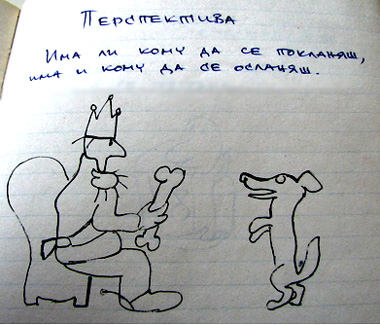 Перспектива
Има ли кому да се покланяш,
има и кому да се осланяш.